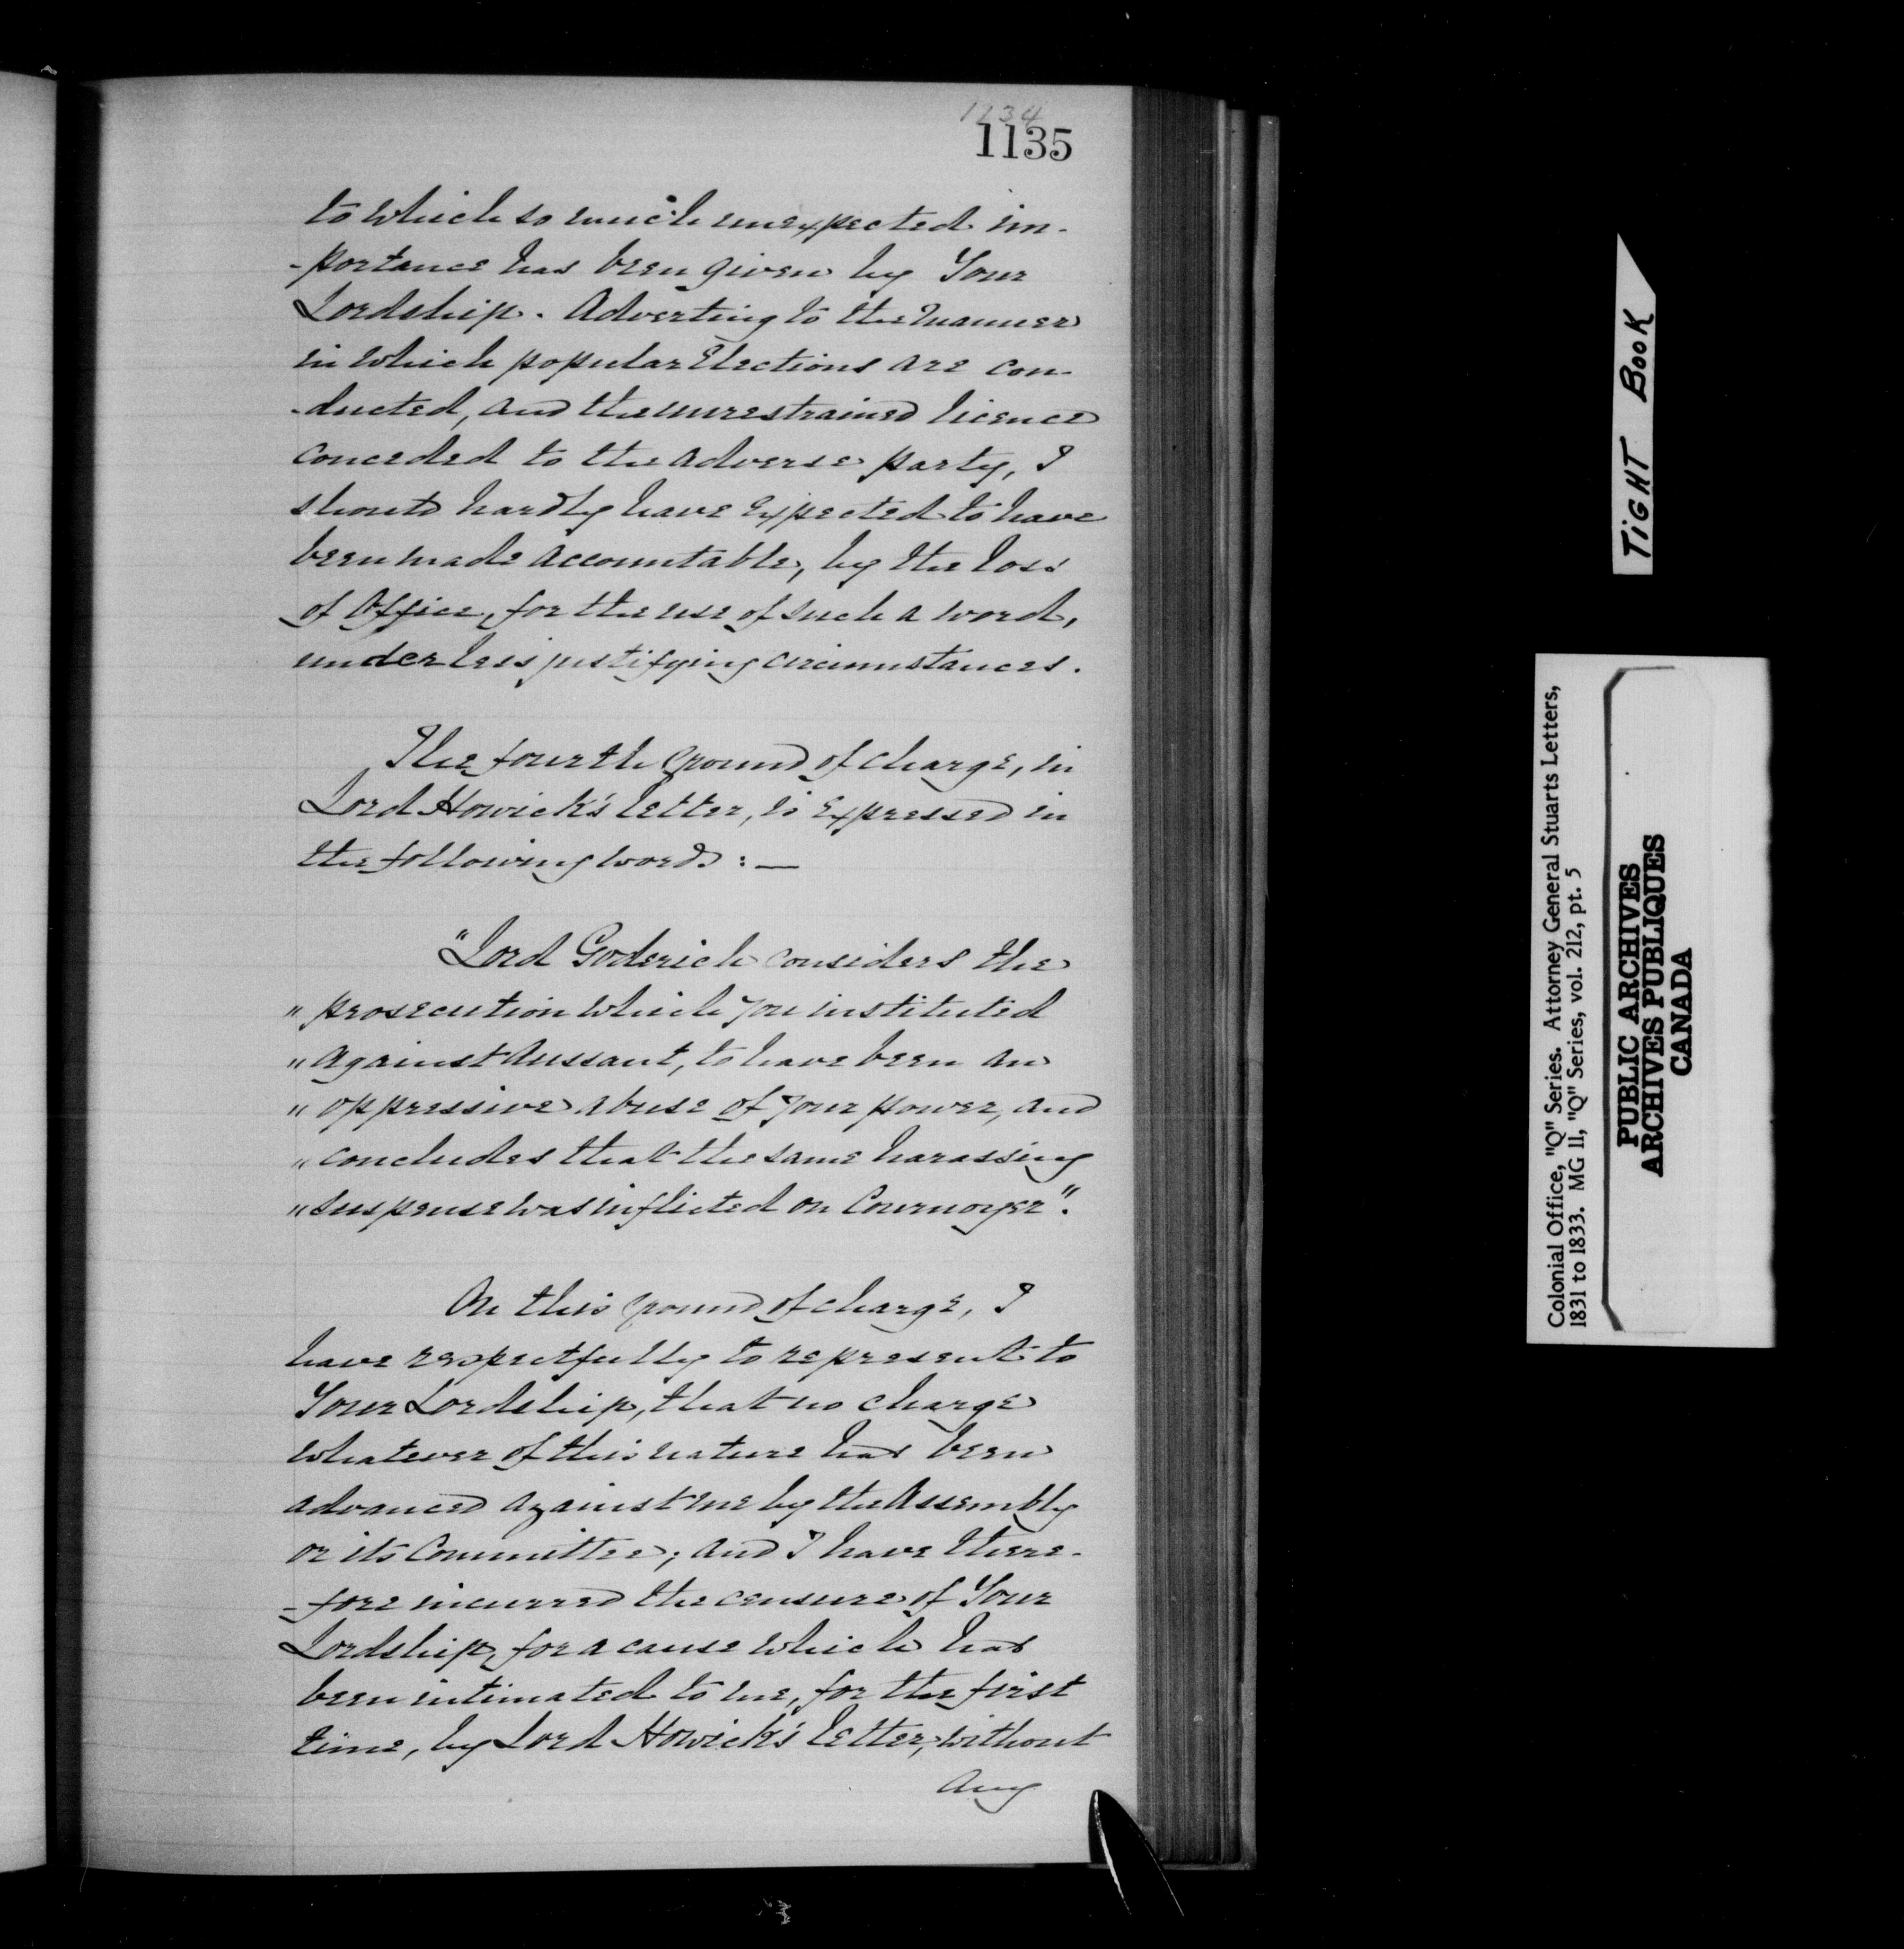 1234
1135
to which so much unexpected im-
-portance has been given by Your
Lordship. Adverting to the manner
in which popular Elections are con-
-ducted, and the unrestrained licence
conceded to the adverse party, I
should hardly have expected to have
been made accountable, by the loss
of Office, for the use of such a word,
under less justifying circumstances.
The fourth ground of charge, in
Lord Howick's letter, is expressed in
the following words :—
"Lord Goderich considers the
" prosecution which you instituted
" against Aussant, to have been an
" oppressive abuse of your power, and
" concludes that the same harassing
" suspense was inflicted on Cournoyer".
On this ground of charge, I
have respectfully to represent to
Your Lordship, that no charge
whatever of this nature has been
advanced against me by the Assembly
or its Committee; and I have there-
-fore incurred the censure of Your
Lordship, for a cause which has
been intimated to me, for the first
time, by Lord Howick's letter, without
any
TIGHT BOOK
Colonial Office, "Q" Series. Attorney General Stuarts Letters,
1831 to 1833. MG 11, "Q" Series, vol. 212, pt. 5
PUBLIC ARCHIVES
ARCHIVES PUBLIQUES
CANADA